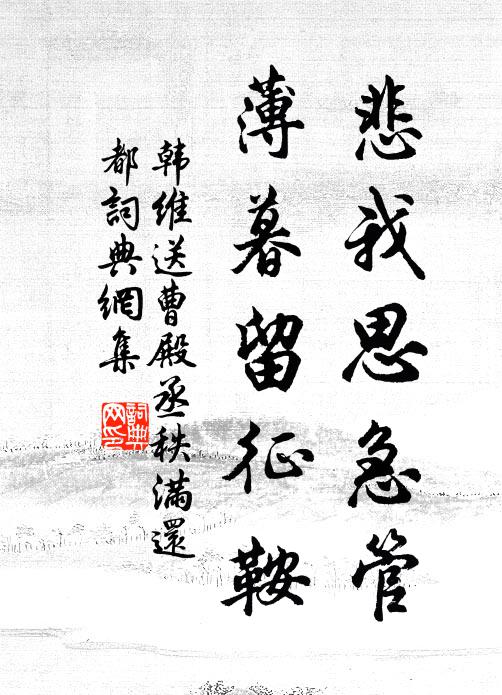 悲我思急管
薄暮留征鞍
韩维送曹殿丞秩满還
都詞典網集
詞典
网印